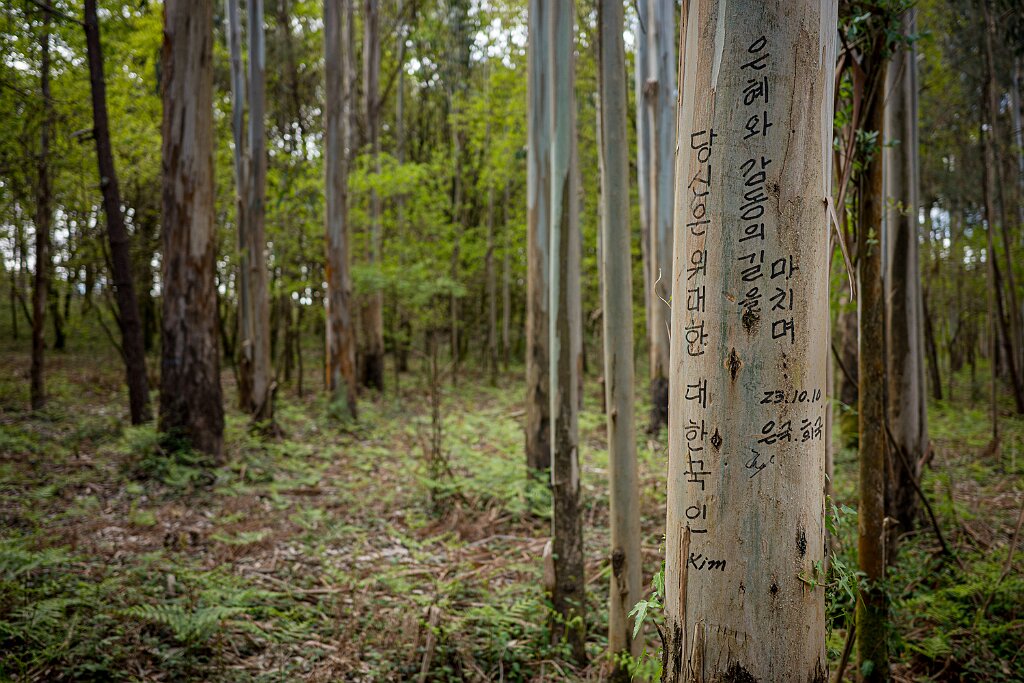 은혜와 감동의 길을
마치며
23.10.10
은국.희국
당신은 위대한 대한국인
Kim